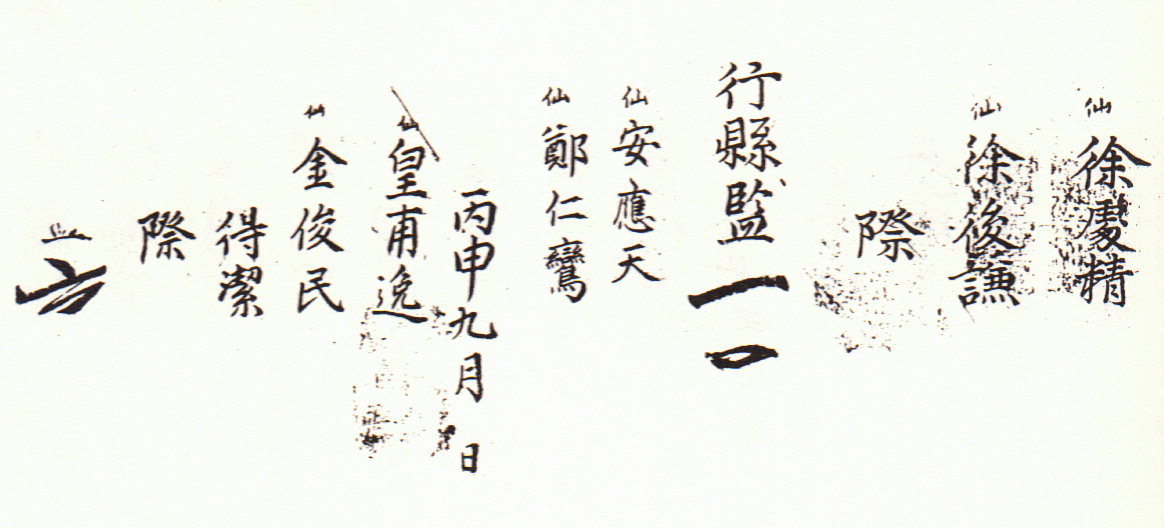 仙 徐慶精
仙 徐後謙
際
行縣監
仙 安應天
仙 鄭仁鸞
丙申九月 日
仙 皇甫逸
仙 金俊民
得潔
際